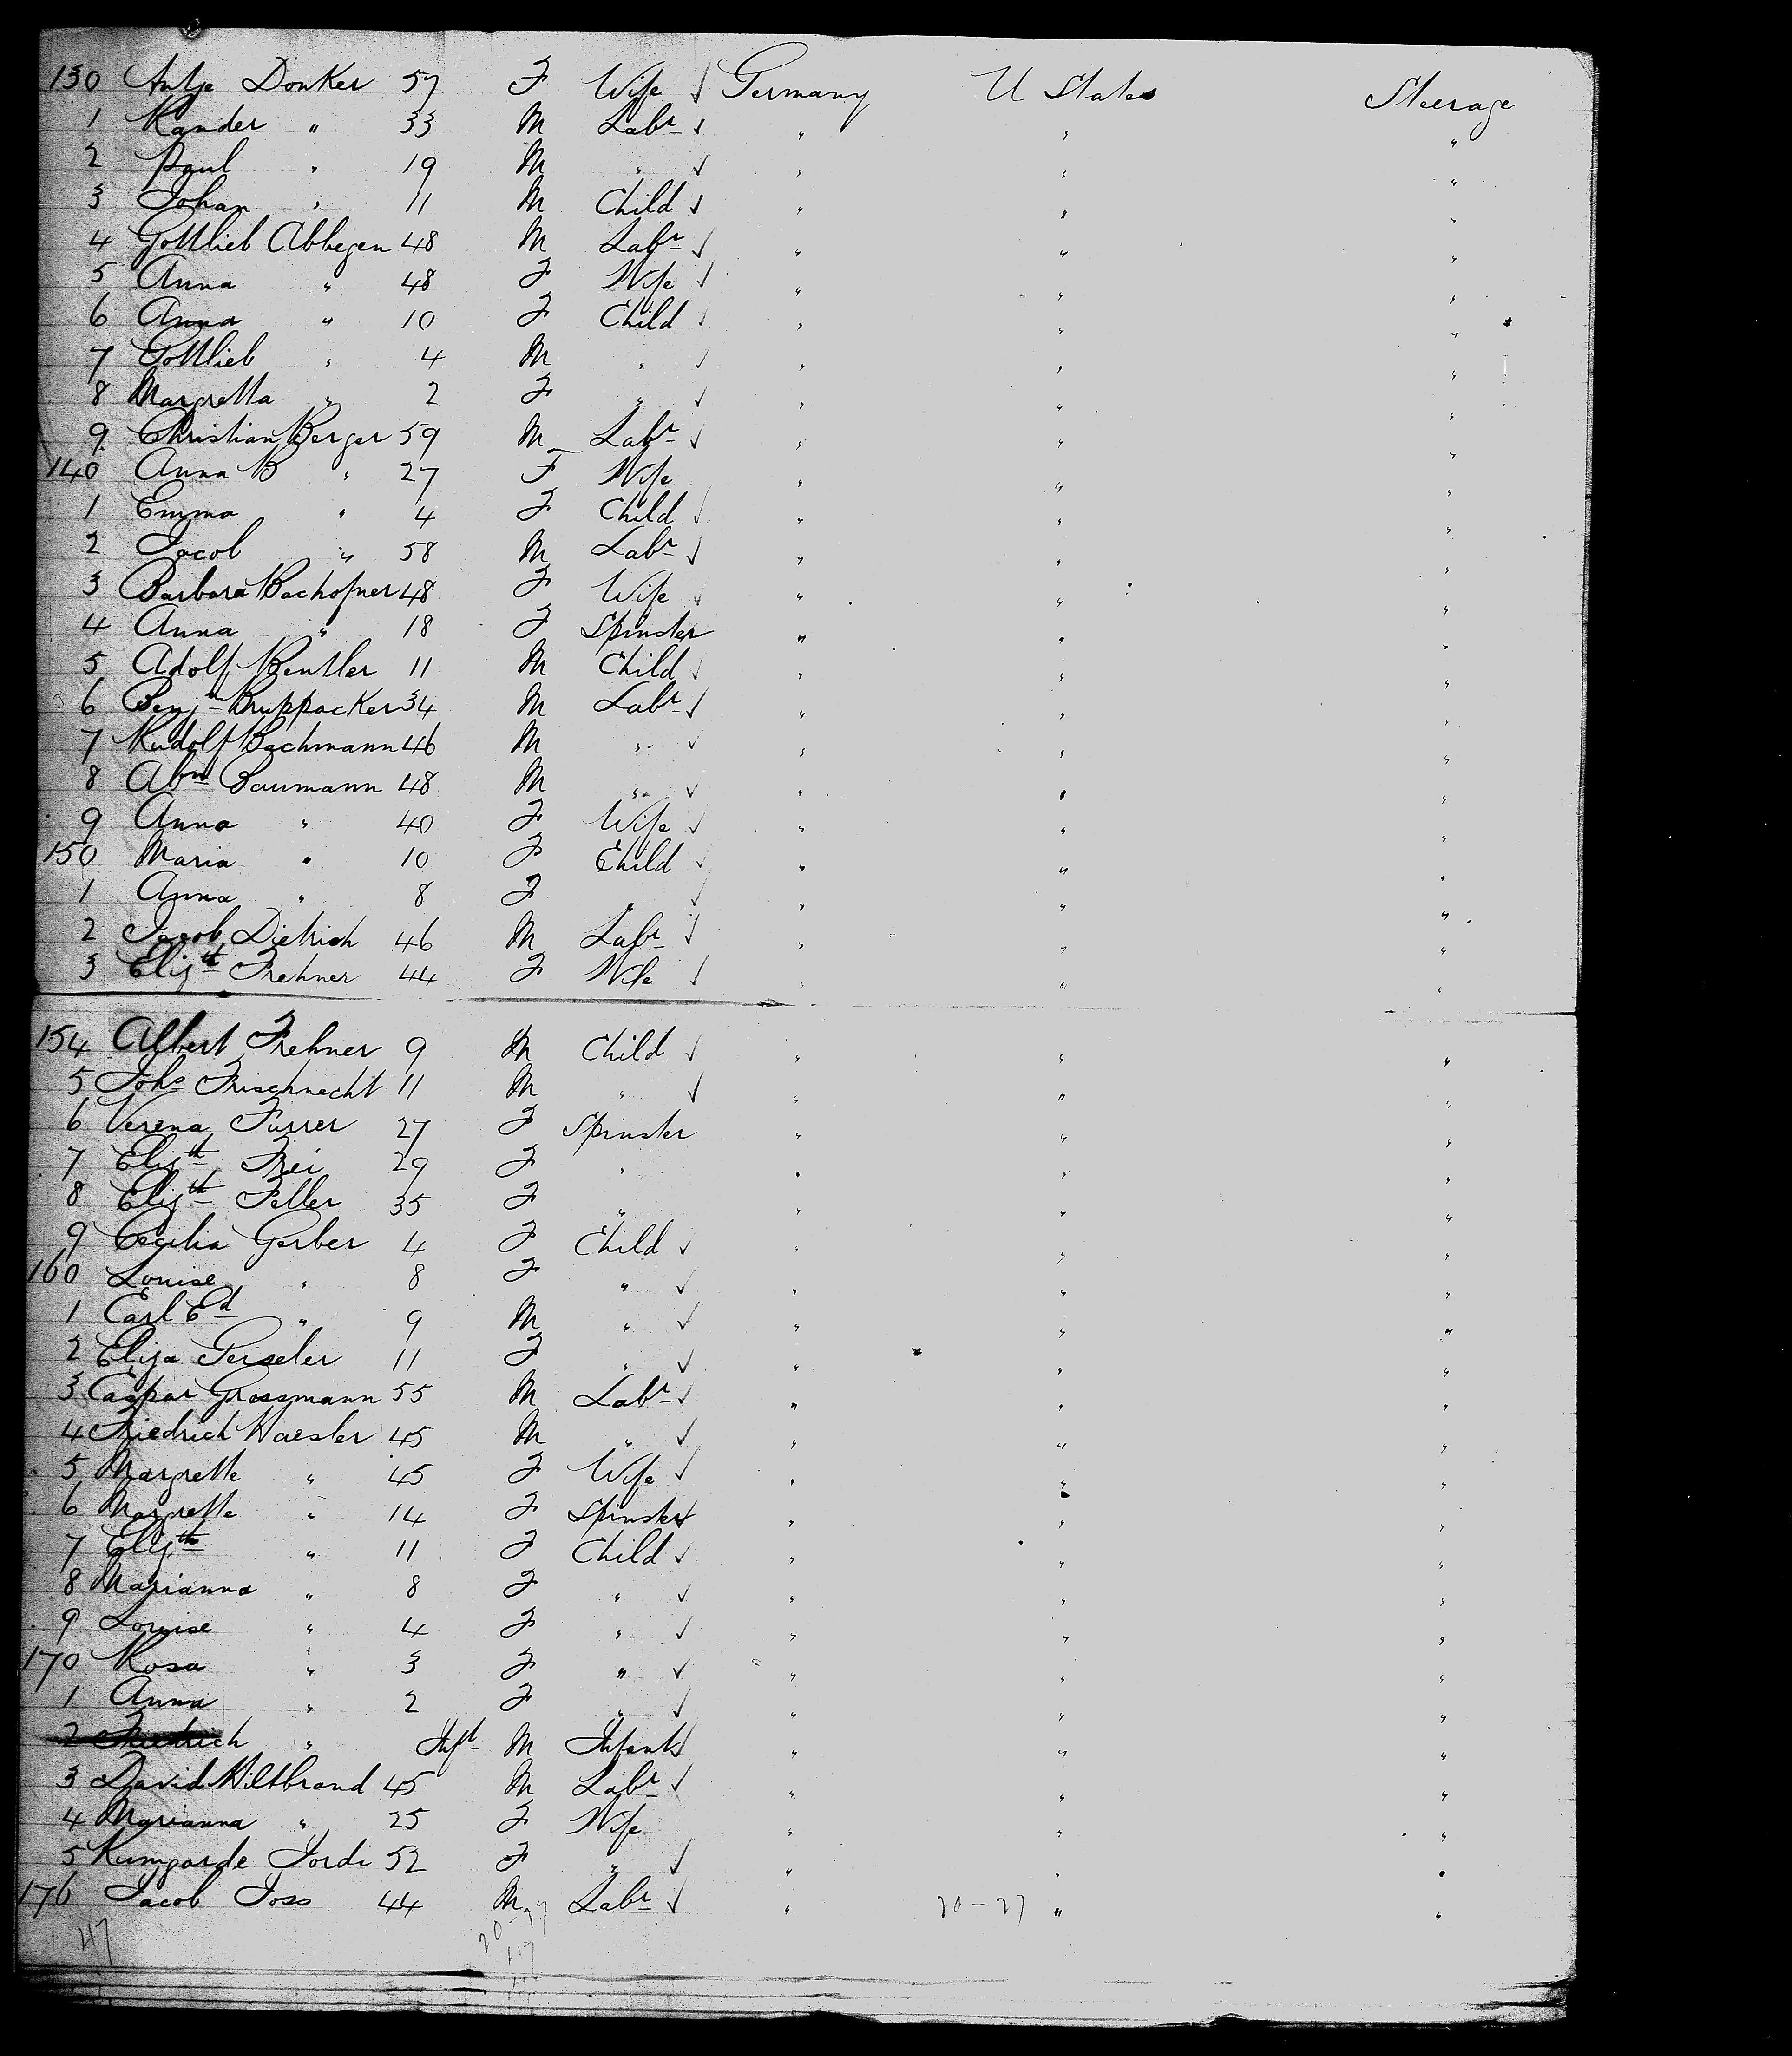 130 Antje Donker 57 F Wife ✓ Germany U States Steerage
1 Kander " 33 M Labr ✓ " " "
2 Paul " 19 M " ✓ " " "
3 Johan " 11 M Child ✓ " " "
4 Gottlieb Abbegen 48 M Labr ✓ " " "
5 Anna " 48 F Wife ✓ " " "
6 Anna " 10 F Child ✓ " " "
7 Gottlieb " 4 M " ✓ " " "
8 Margretta " 2 F " ✓ " " "
9 Christian Berger 59 M Labr ✓ " " "
140 Anna B " 27 F Wife " " "
1 Emma " 4 F Child ✓ " " "
2 Jacob " 58 M Labr ✓ " " "
3 Barbara Bachofner 48 F Wife ✓ " " "
4 Anna " 18 F Spinster " " "
5 Adolf Bentler 11 M Child ✓ " " "
6 Benjn Bruppacker 34 M Labr ✓ " " "
7 Rudolf Bachmann 46 M " ✓ " " "
8 Abm Baumann 48 M " ✓ " " "
9 Anna " 40 F Wife ✓ " " "
150 Maria " 10 F Child ✓ " " "
1 Anna " 8 F " ✓ " " "
2 Jacob Dietrich 46 M Labr ✓ " " "
3 Elizth Frehner 44 F Wife ✓ " " "
154 Albert Frehner 9 M Child ✓ " " "
5 Johs Frischnecht 11 M " ✓ " " "
6 Verena Furrer 27 F Spinster " " "
7 Elizth Frei 29 F " " " "
8 Elizth Feller 35 F " " " "
9 Cecilia Gerber 4 F Child ✓ " " "
160 Louise " 8 F " ✓ " " "
1 Carl Ed " 9 M " ✓ " " "
2 Eliza Geiseler 11 F " ✓ " " "
3 Caspar Grossmann 55 M Labr ✓ " " "
4 Friedrich Haesler 45 M " ✓ " " "
5 Margrette " 45 F Wife ✓ " " "
6 Margrette " 14 F Spinster ✓ " " "
7 Elizth " 11 F Child ✓ " " "
8 Marianna " 8 F " ✓ " " "
9 Louise " 4 F " ✓ " " "
170 Rosa " 3 F " ✓ " " "
1 Anna " 2 F " ✓ " " "
2 Friedrich " Inft M Infant ✓ " " "
3 David Hiltbrand 45 M Labr ✓ " " "
4 Marianna " 25 F Wife " " "
5 Kumgarde Jordi 52 F " ✓ " " "
176 Jacob Joss 44 M Labr ✓ " 20-27 " "
47 20-27